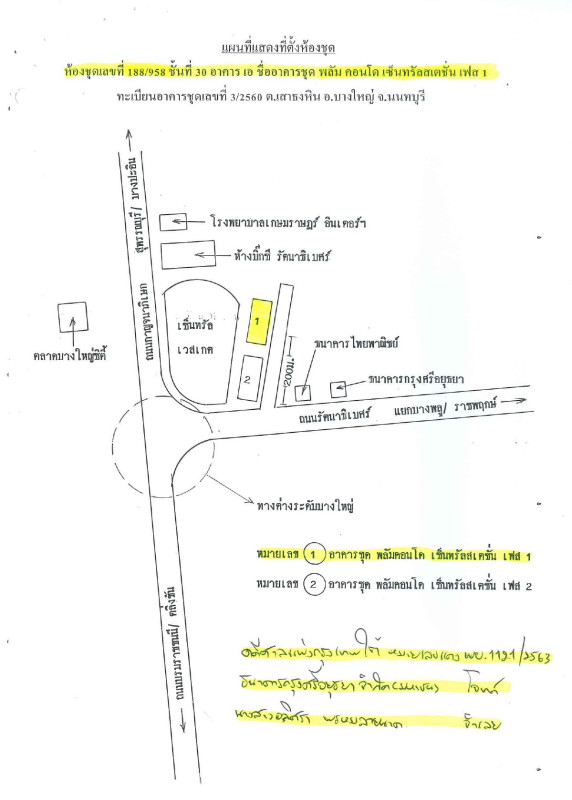 แผนที่แสดงที่ตั้งห้องชุด
ห้องชุดเลขที่ 188/958 ชั้นที่ 30 อาคาร เอ ชื่ออาคารชุด พลัม คอนโด เซ็นทรัลสเตชั่น เฟส 1
ทะเบียนอาคารชุดเลขที่ 3/2560 ต.เสาธงหิน อ.บางใหญ่ จ.นนทบุรี
สุพรรณบุรี/ บางปะอิน
โรงพยาบาลเกษมราษฎร์ อินเตอร์ฯ
ห้างบิ๊กซี รัตนาธิเบศร์
ถนนกาญจนาภิเษก
เซ็นทรัล
เวสเกต
1
2
200ม.
ตลาดบางใหญ่ซิตี้
ธนาคารไทยพาณิชย์
ธนาคารกรุงศรีอยุธยา
ถนนรัตนาธิเบศร์ แยกบางพลู/ ราชพฤกษ์
ทางต่างระดับบางใหญ่
หมายเลข 1 อาคารชุด พลัมคอนโด เซ็นทรัลสเตชั่น เฟส 1
หมายเลข 2 อาคารชุด พลัมคอนโด เซ็นทรัลสเตชั่น เฟส 2
ถนนบรมราชชนนี/ ตลิ่งชัน
คดีศาลแพ่งกรุงเทพใต้ หมายเลขแดง ผบ.1121/2563
ธนาคารกรุงศรีอยุธยา จำกัด (มหาชน) โจทก์
นางสาว จำเลย